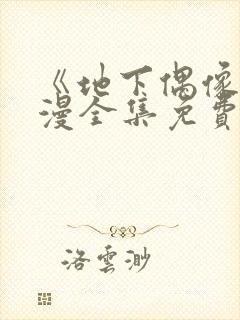 《地下偶像
漫全集免費
洛雲渺